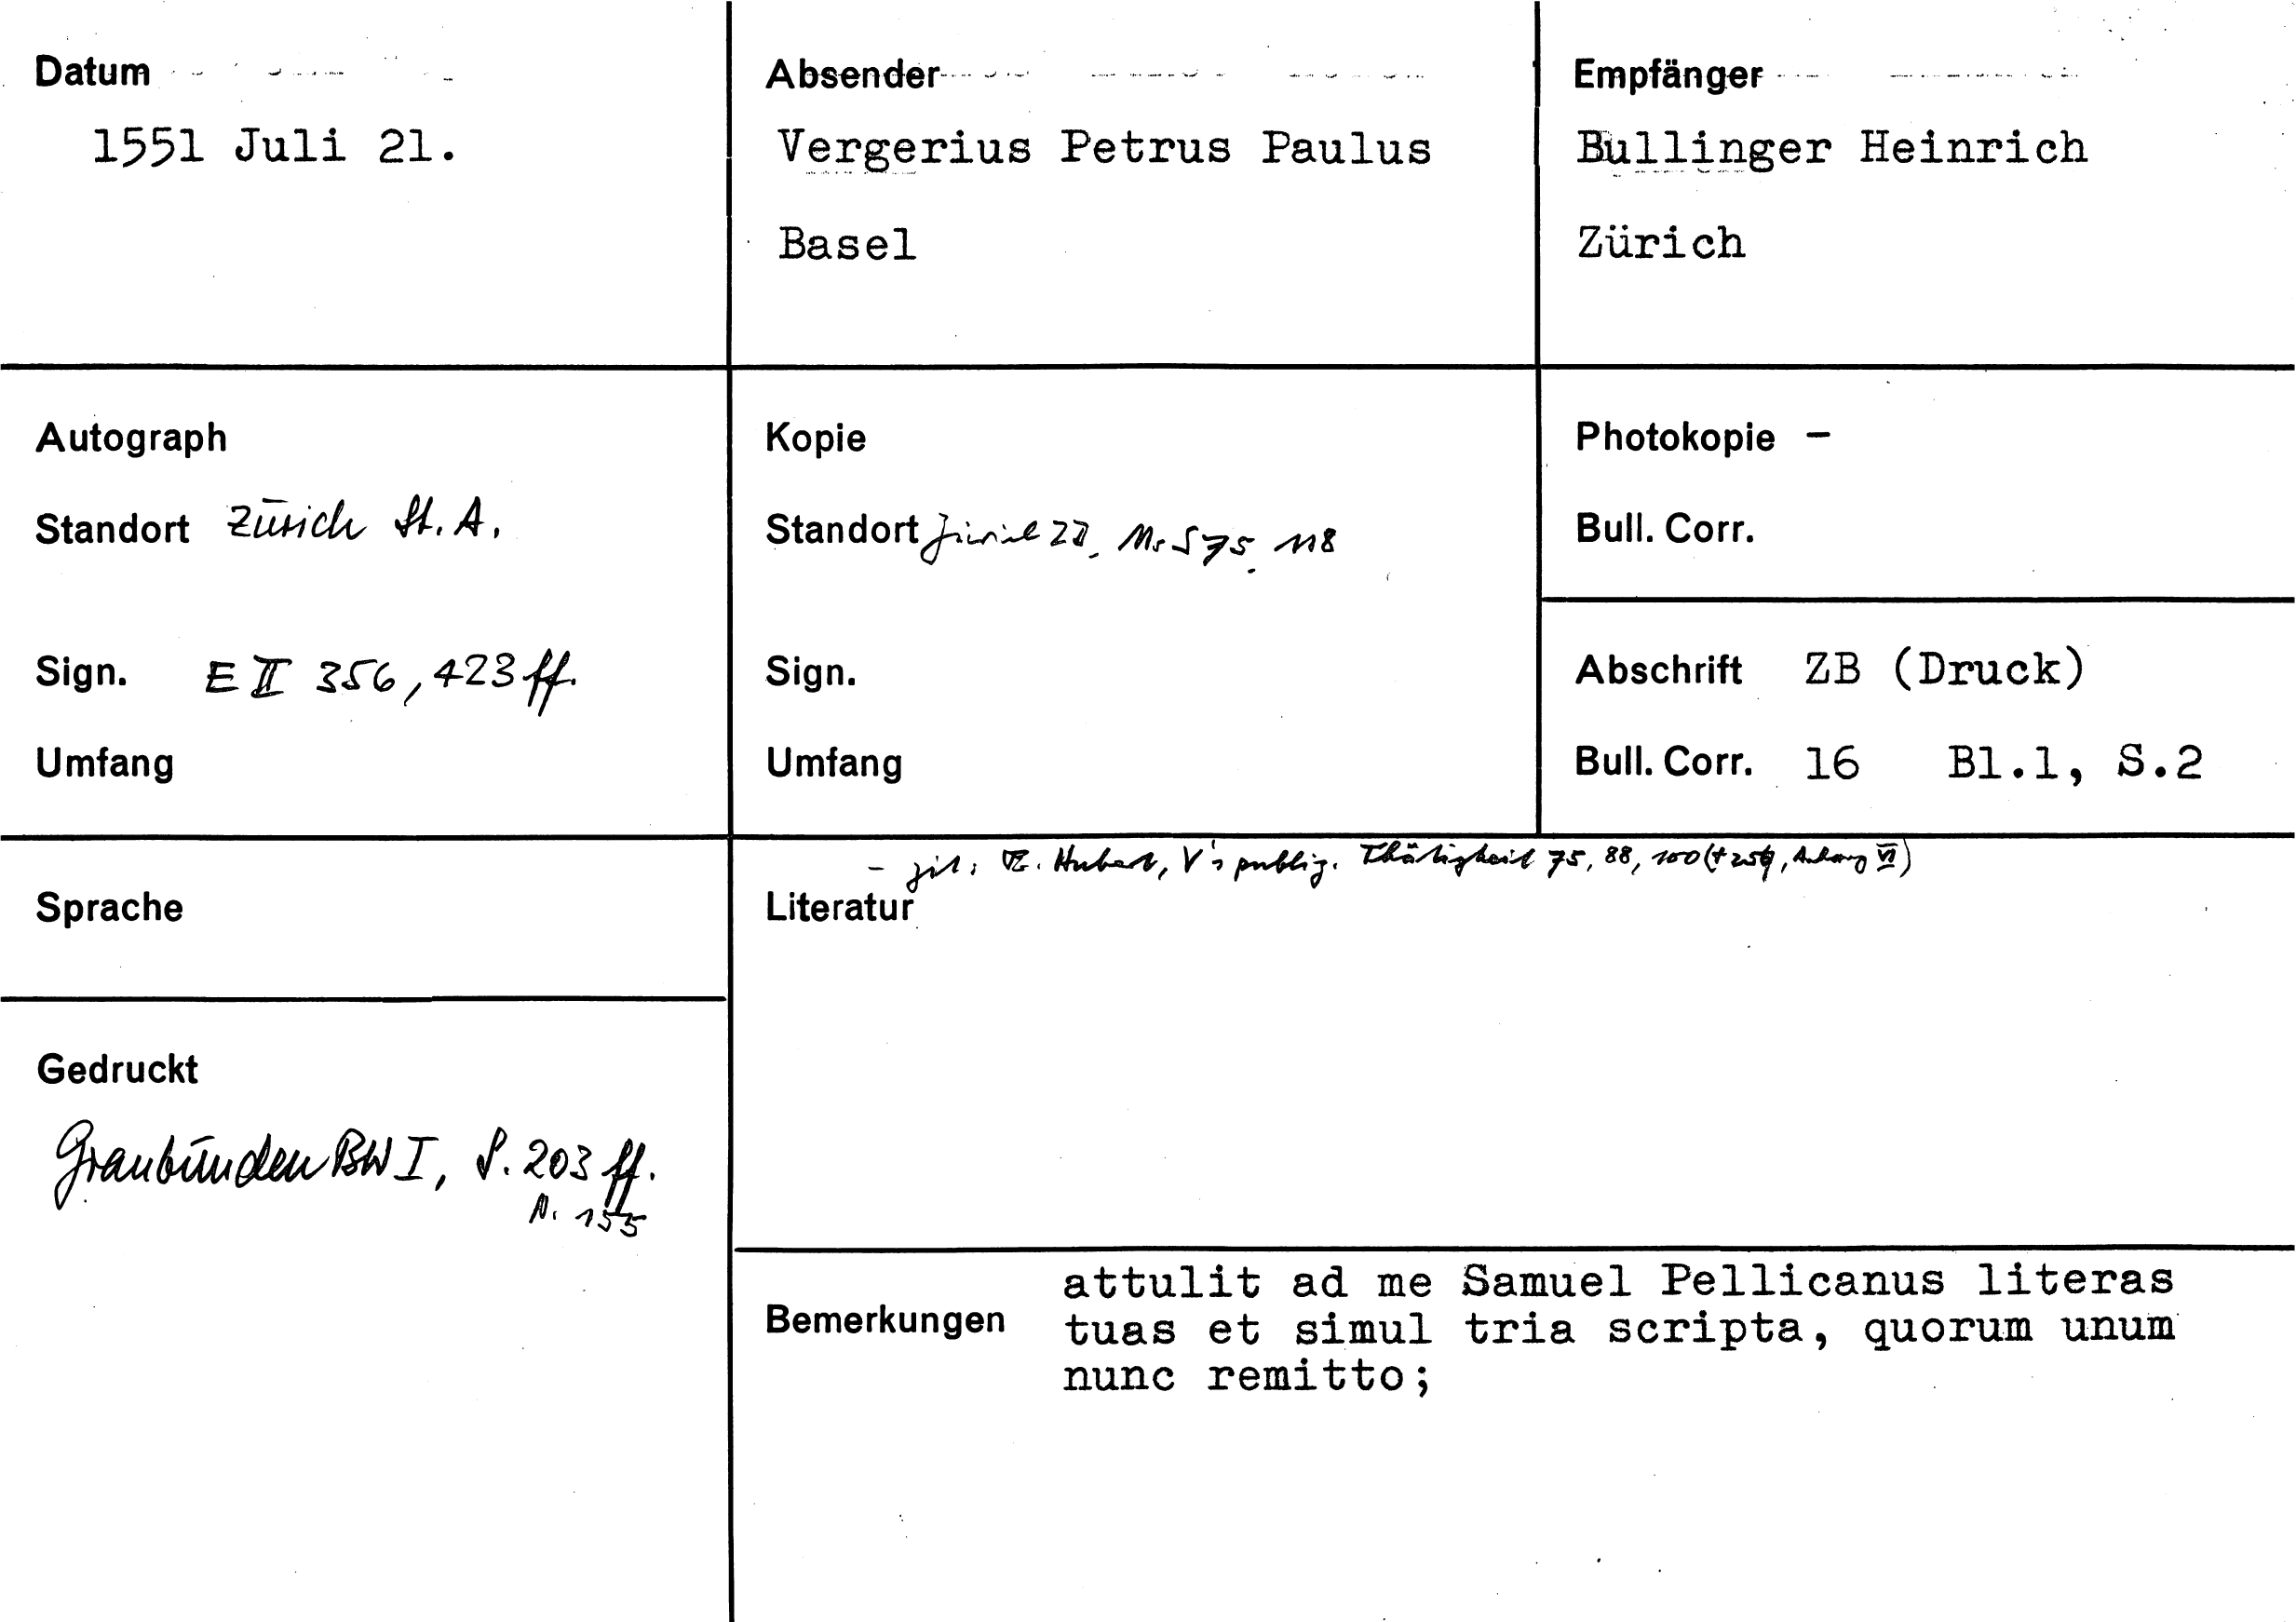 Datum
1551 Juli 21.
Absender
Vergerius Petrus Paulus
Basel
Empfänger
Bullinger Heinrich
Zürich
Autograph
Standort Zürich St. A.
Sign. E II 356, 423 ff.
Umfang
Kopie
Standort Zürich ZB, Ms S 75, 118
Sign.
Umfang
Photokopie –
Bull. Corr.
Abschrift ZB (Druck)
Bull. Corr. 16 Bl.1, S.2
Sprache
Gedruckt
Graubünden BW I, S. 203 ff.
N. 155
- zit: Hubert, V's publiz. Thätigkeit 75, 88, 100 (Anhang VI)
Literatur
Bemerkungen
attulit ad me Samuel Pellicanus literas
tuas et simul tria scripta, quorum unum
nunc remitto;